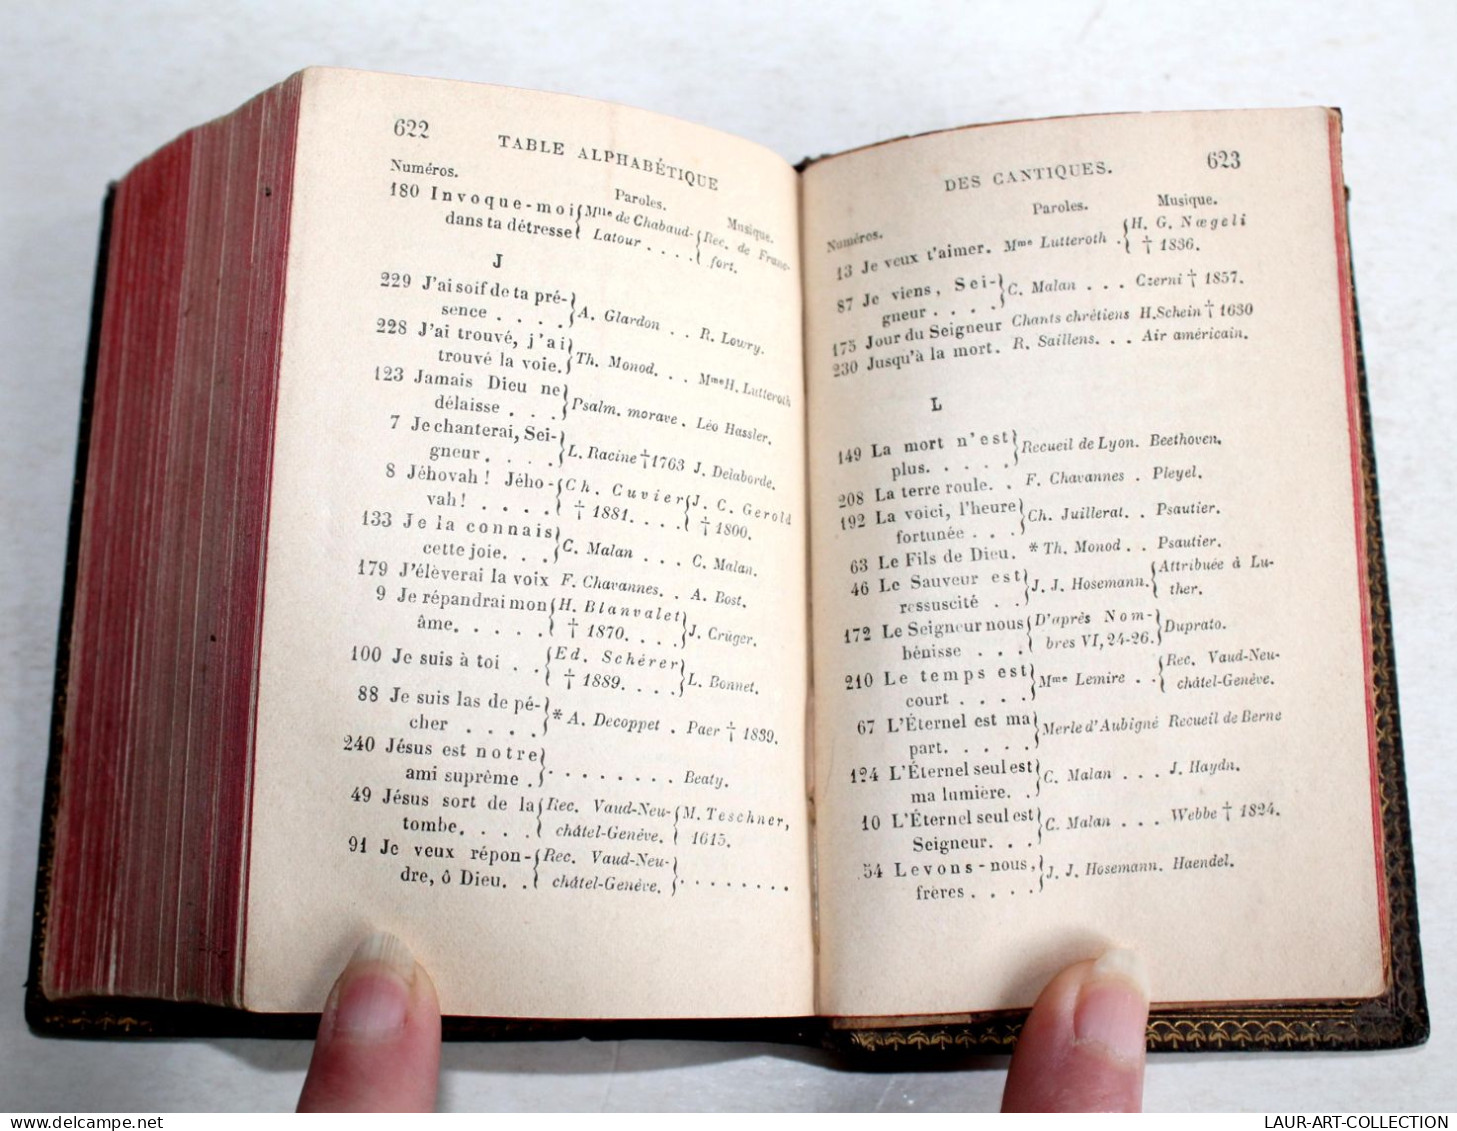 622
TABLE ALPHABÉTIQUE
Numéros. Paroles. Musique.
180 Invoque-moi Mlle de Chabaud- Rec. de Franc-
dans ta détresse Latour . . . . fort.
J
229 J'ai soif de ta pré-
sence . . . . A. Glardon . . R. Lowry.
228 J'ai trouvé, j'ai
trouvé la voie. Th. Monod. . . Mme H. Lutteroth
123 Jamais Dieu ne
délaisse . . . Psalm. morave. Léo Hassler.
7 Je chanterai, Sei-
gneur . . . . L. Racine † 1763 J. Delaborde.
8 Jéhovah ! Jého- Ch. Cuvier J. C. Gerold
vah ! . . . . † 1881. . . . † 1800.
133 Je la connais
cette joie. . . C. Malan . . . C. Malan.
179 J'élèverai la voix F. Chavannes. . A. Bost.
9 Je répandrai mon H. Blanvalet
âme. . . . . † 1870. . . . J. Crüger.
100 Je suis à toi . . Ed. Schérer
† 1889. . . . L. Bonnet.
88 Je suis las de pé-
cher . . . . * A. Decoppet . Paer † 1839.
240 Jésus est notre
ami suprême . . . . . . . . . Beaty.
49 Jésus sort de la Rec. Vaud-Neu- M. Teschner,
tombe. . . . châtel-Genève. 1615.
91 Je veux répon- Rec. Vaud-Neu-
dre, ô Dieu. . . châtel-Genève. . . . . . . .
DES CANTIQUES. 623
Numéros. Paroles. Musique.
13 Je veux t'aimer. Mme Lutteroth . H. G. Nœgeli
† 1836.
87 Je viens, Sei-
gneur . . . . C. Malan . . . Czerni † 1857.
175 Jour du Seigneur Chants chrétiens H. Schein † 1630
230 Jusqu'à la mort. R. Saillens. . . Air américain.
L
149 La mort n'est
plus. . . . . Recueil de Lyon. Beethoven.
208 La terre roule. . F. Chavannes . Pleyel.
192 La voici, l'heure
fortunée . . . Ch. Juillerat. . Psautier.
63 Le Fils de Dieu. * Th. Monod . . Psautier.
46 Le Sauveur est Attribuée à Lu-
ressuscité . . J. J. Hosemann. ther.
172 Le Seigneur nous D'après Nom-
bénisse . . . bres VI, 24-26. Duprato.
210 Le temps est Rec. Vaud-Neu-
court . . . . Mme Lemire . . châtel-Genève.
67 L'Éternel est ma
part. . . . . Merle d'Aubigné Recueil de Berne
124 L'Éternel seul est
ma lumière. . C. Malan . . . J. Haydn.
10 L'Éternel seul est
Seigneur. . . C. Malan . . . Webbe † 1824.
54 Levons-nous,
frères . . . . J. J. Hosemann. Haendel.
delcampe.net
LAUR-ART-COLLECTION